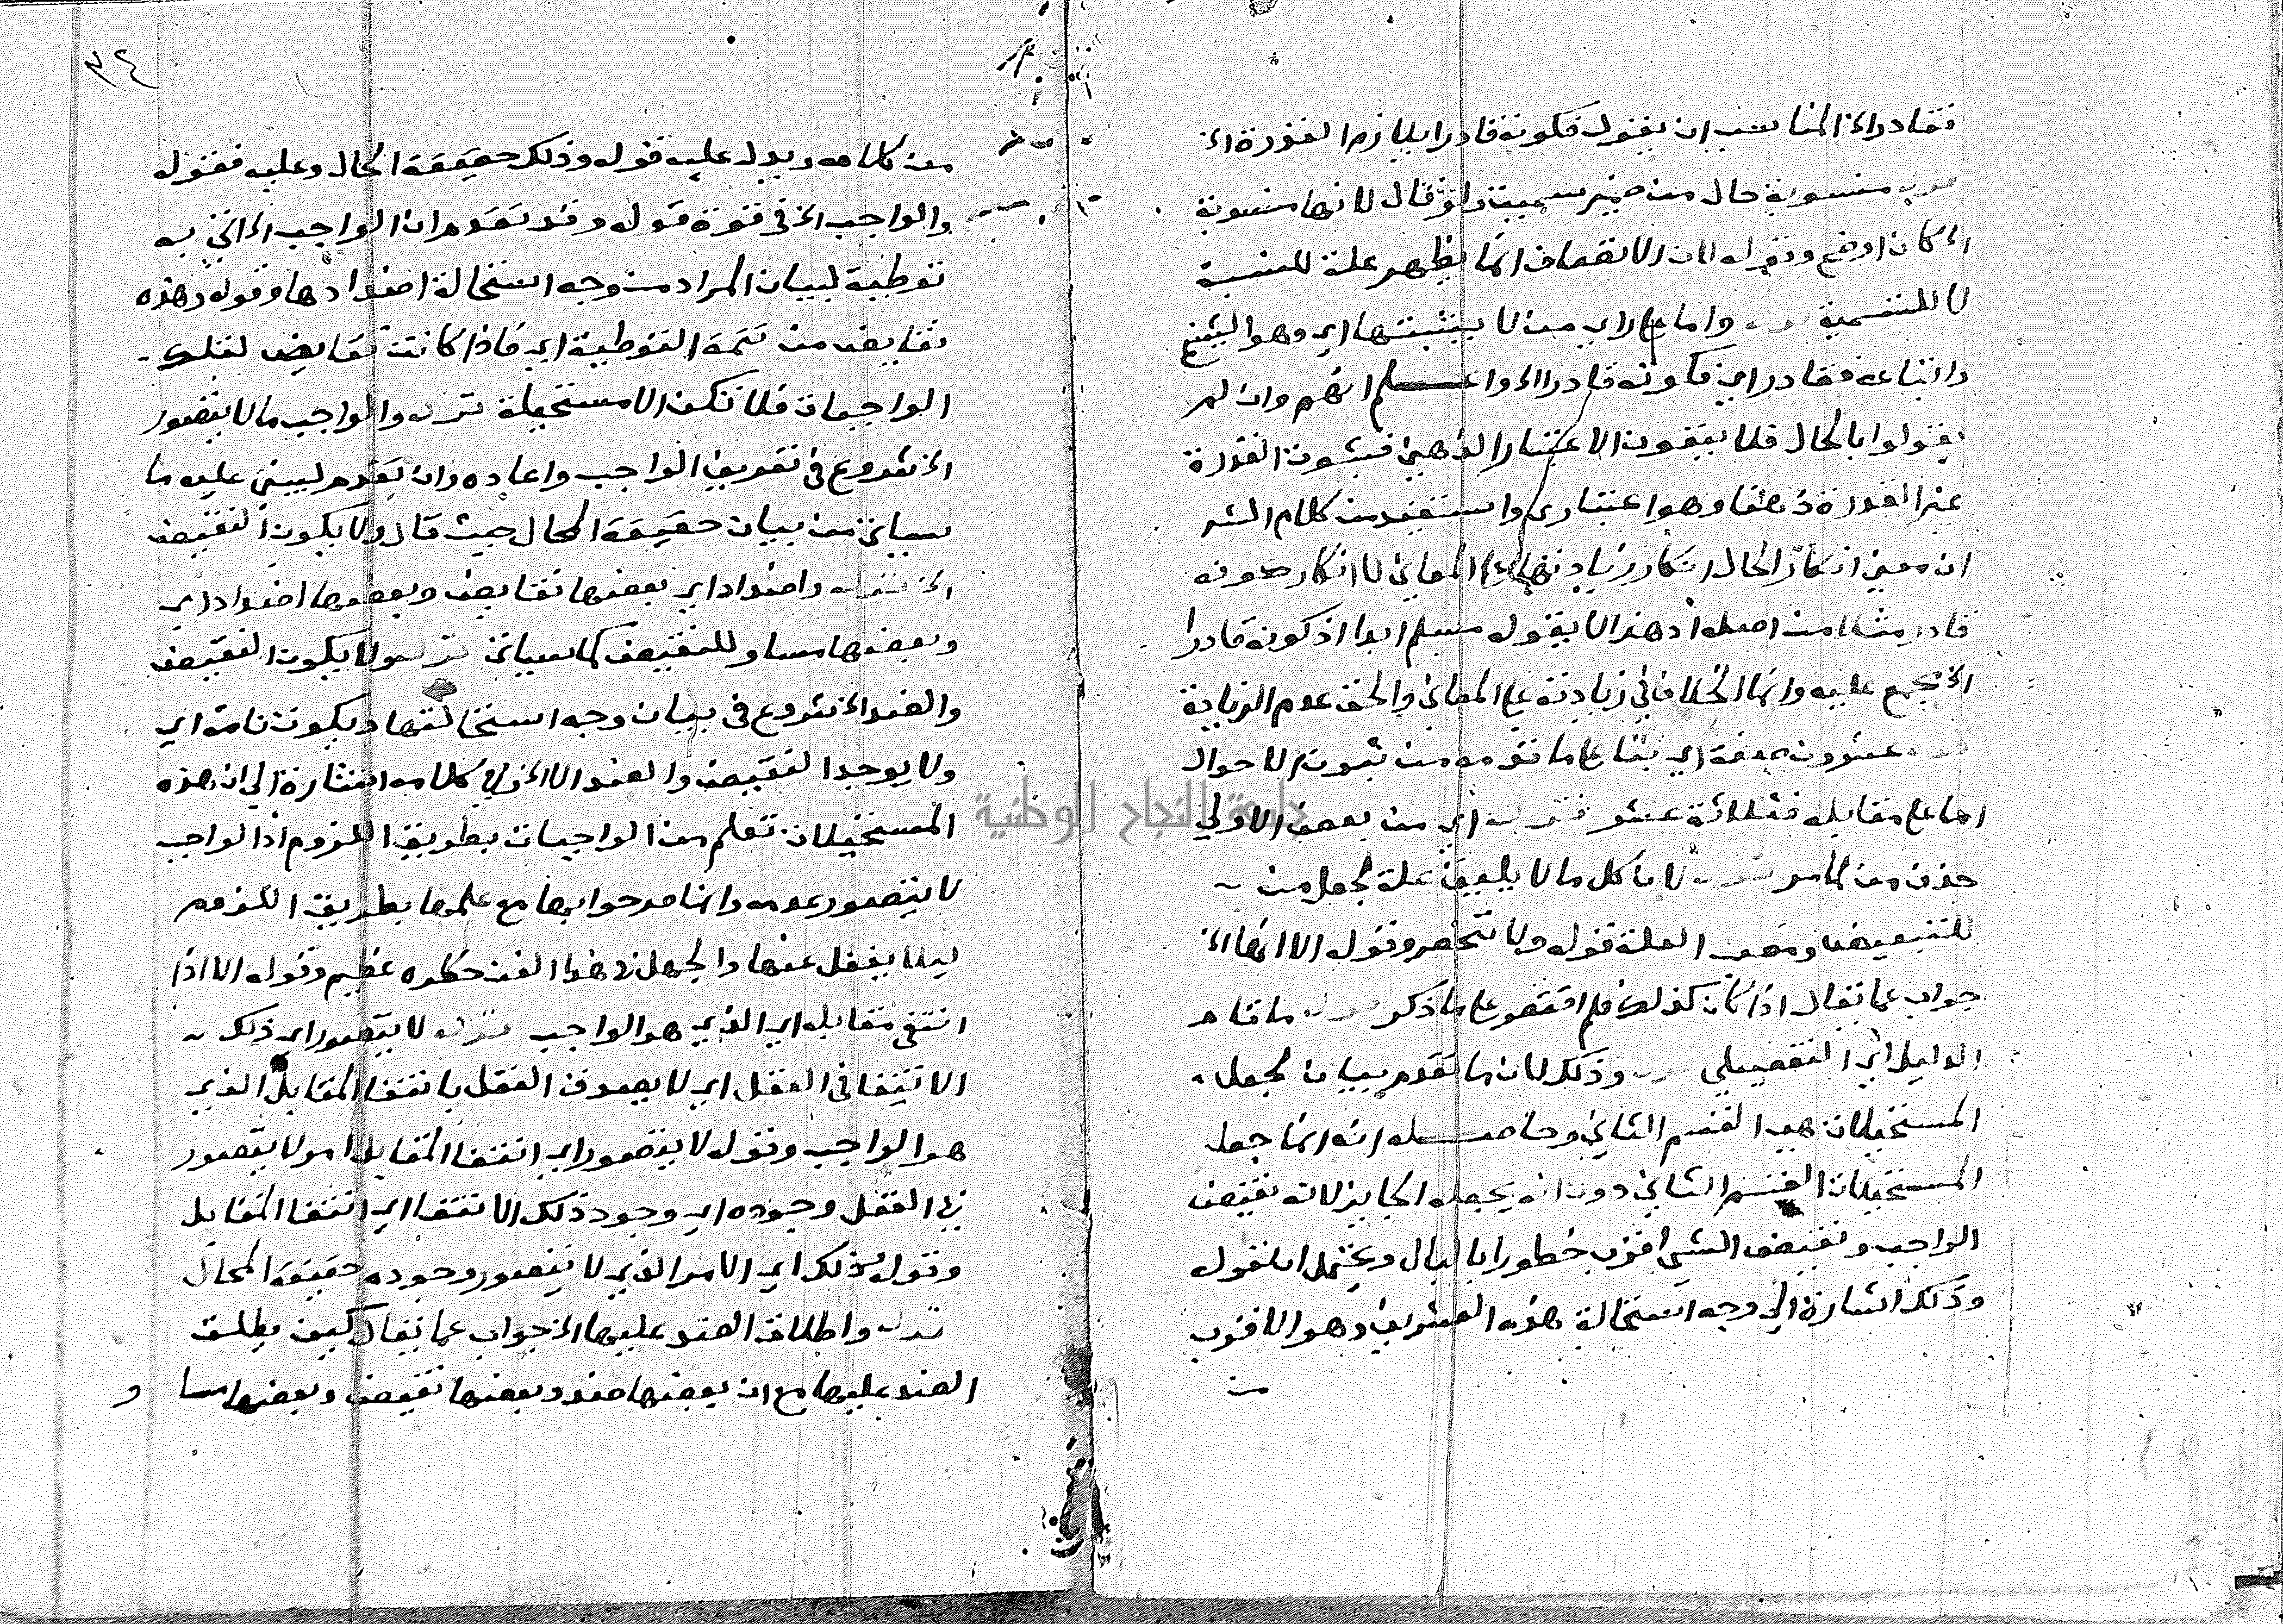 فقادر الخ المناسب ان يقول فكونه قادرا يلازم القدرة الخ
قوله منسوبة حال من ضمير سميت ولو قال لانها منسوبة
الخ كان اوضح وقوله لان الاتصاف انما يظهر علة للنسبة
لا للتسمية قوله واما على راي من لا يثبتها اي وهو الشيخ
واتباعه فقادر اي فكونه قادرا الخ واعلم انهم وان لم
يقولوا بالحال فلا ينفون الاعتبار الذهني فيثبتون القدرة
غير القدرة ذهنا وهو اعتباري واستفيد من كلام الشر
ان معنى انكار الحال انكار زيادتها على المعاني لا انكار كونه
قادر مثلا من اصله اذ هذا لا يقوله مسلم ابدا اذ كونه قادرا
الخ مجمع عليه وانما الخلاف في زيادته على المعاني والحق عدم الزيادة
قوله عشرون صفة اي بناء على ما تقدم من ثبوت الاحوال
اما على مقابله فثلاثة عشر قوله اي من بعض الاولى
حذف من لما مر قوله لان كل ما لا يليق علة لجعل من
للتبعيض ومصب العلة قوله ولا تنحصر وقوله الا انها الخ
جواب عما يقال اذا كان كذلك فلم اقتصر على ما ذكر قوله ما قام
الدليل اي التفصيلي قوله وذلك لان ما تقدم بيان لجعل
المستحيلات هي القسم الثاني وحاصله انه انما جعل
المستحيلات القسم الثاني دون انه يجعله الجايز لانه نقيض
الواجب ونقيض الشي اقرب خطورا بالبال ويحتمل ان قوله
وذلك اشارة الى وجه استحالة هذه العشرين وهو الاقرب
من
٣٤
من كلامه ويدل عليه قوله وذلك حقيقة المحال وعليه فقوله
والواجب الخ في قوة قوله وقد تقدم ان الواجب الخ اتى به
توطية لبيان المراد من وجه استحالة اضدادها وقوله وهذه
نقايض من تتمة التوطية اي فاذا كانت نقايض لتلك
الواجبات فلا تكن الا مستحيلة قوله والواجب ما لا يتصور
الخ شروع في تعريف الواجب واعاده وان تقدم ليبني عليه ما
سياتي من بيان حقيقة المحال حيث قال ولا يكون النقيض
الخ قوله واضداد اي بعضها نقايض وبعضها اضداد اي
وبعضها مساو للنقيض كما سياتي قوله ولا يكون النقيض
والضد الخ شروع في بيان وجه استحالتها ويكون تامة اي
ولا يوجد النقيض والضد الا الخ وفي كلامه اشارة الى ان هذه
المستحيلات تعلم من الواجبات بطريق اللزوم اذ الواجب
لا يتصور عدمه وانما صرحوا بها مع علمها بطريق اللزوم
ليلا يغفل عنها والجهل في هذا الفن خطره عظيم وقوله الا اذا
انتفى مقابله اي الذي هو الواجب قوله لا يتصور اي ذلك
الانتفا في العقل اي لا يصدق العقل بانتفا المقابل الذي
هو الواجب وقوله لا يتصور اي انتفا المقابل امر لا يتصور
في العقل وجوده اي وجود ذلك الانتفا اي انتفا المقابل
وقوله وذلك اي الامر الذي لا يتصور وجوده حقيقة المحال
قوله واطلاق الضد عليها الخ جواب عما يقال كيف يطلق
الضد عليها مع ان بعضها ضد وبعضها نقيض وبعضها مسا و
جامعة النجاح الوطنية